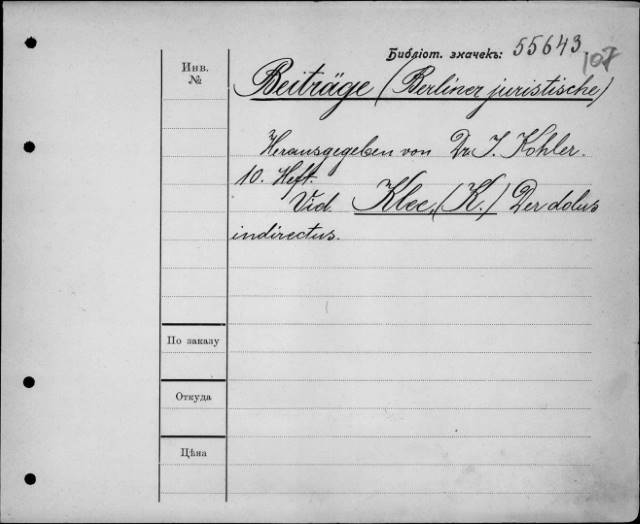 Библіот. значекъ: 55643
107
Инв.
№
Beiträge (Berliner juristische)
Herausgegeben von Dr. J. Kohler.
10. Heft.
Vid. Klee, (K.) Der dolus
indirectus.
По заказу
Откуда
Цѣна